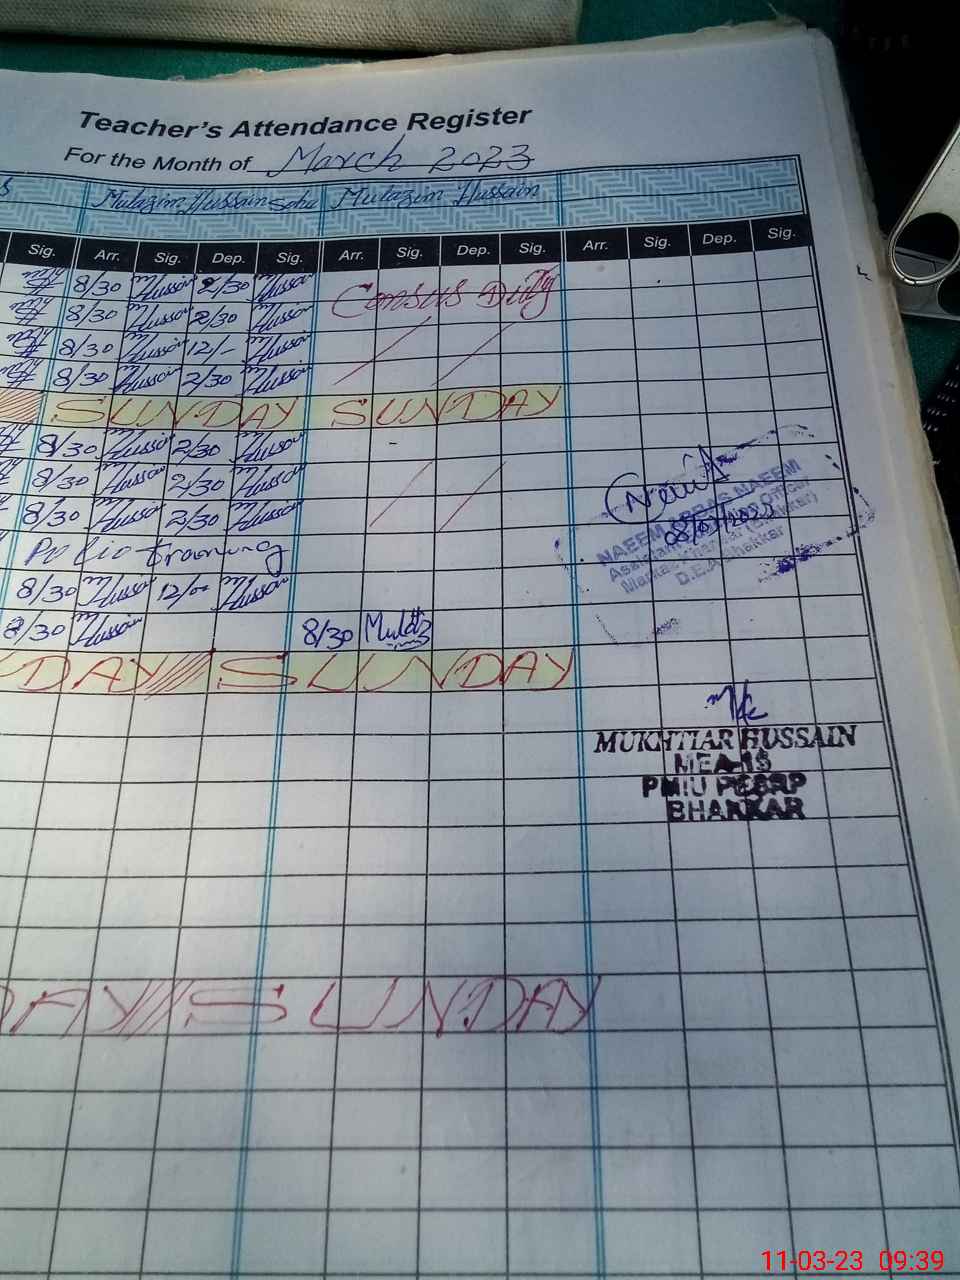 Teacher's Attendance Register
For the Month of March 2023
Mulazim Hussain Mulazim Hussain
Sig. Arr. Sig. Dep. Sig. Arr. Sig. Dep. Sig. Arr. Sig. Dep. Sig.
8/30 Hussain 2/30 Hussain Census Duty
8/30 Hussain 2/30 Hussain
8/30 Hussain 12/- Hussain
8/30 Hussain 2/30 Hussain
SUNDAY SUNDAY
8/30 Hussain 2/30 Hussain -
8/30 Hussain 2/30 Hussain
8/30 Hussain 2/30 Hussain
Polio training
8/30 Hussain 12/00 Hussain
8/30 Hussain 8/30
DAY SUNDAY
NAEEM ABBAS NAEEM
08/03/2023
D.E.A Bhakkar
MUKHTIAR HUSSAIN
MEA-13
PMIU PESRP
BHAKKAR
DAY SUNDAY
11-03-23 09:39